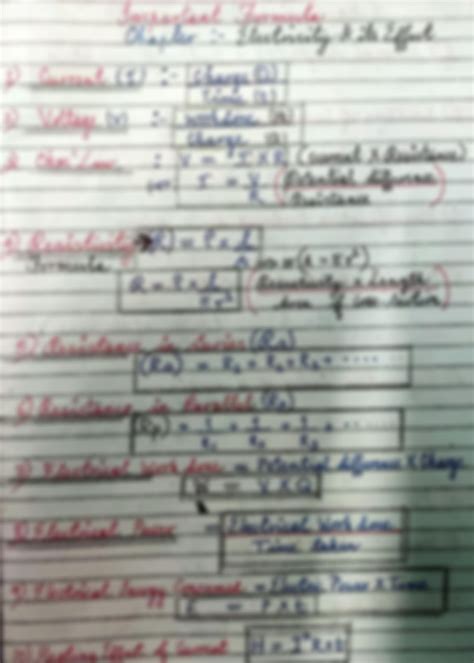 Important Formula
Chapter :- Electricity & its Effect
1) Current (I) :- Charge (Q)
Time (t)
2) Voltage (V) :- Work done
Charge (Q)
Ohm's Law : V = I × R (Current × Resistance)
I = V/R (Potential difference
Resistance)
4) Resistivity (R) = ρ × L
Formula A (A = πr²)
R = ρ × L/πr² (Resistivity × Length
Area of Cross Section)
5) Resistance in Series (Rs)
(Rs) = R₁ + R₂ + R₃ + ....
6) Resistance in Parallel (Rp)
Rp = 1/R₁ + 1/R₂ + 1/R₃ + ...
7) Electrical Work done = Potential difference × Charge
W = V × Q
8) Electrical Power = Electrical Work done
Time taken
9) Electrical Energy = Electric Power × Time
E = P × t
10) Heating Effect of Current H = I²R×t